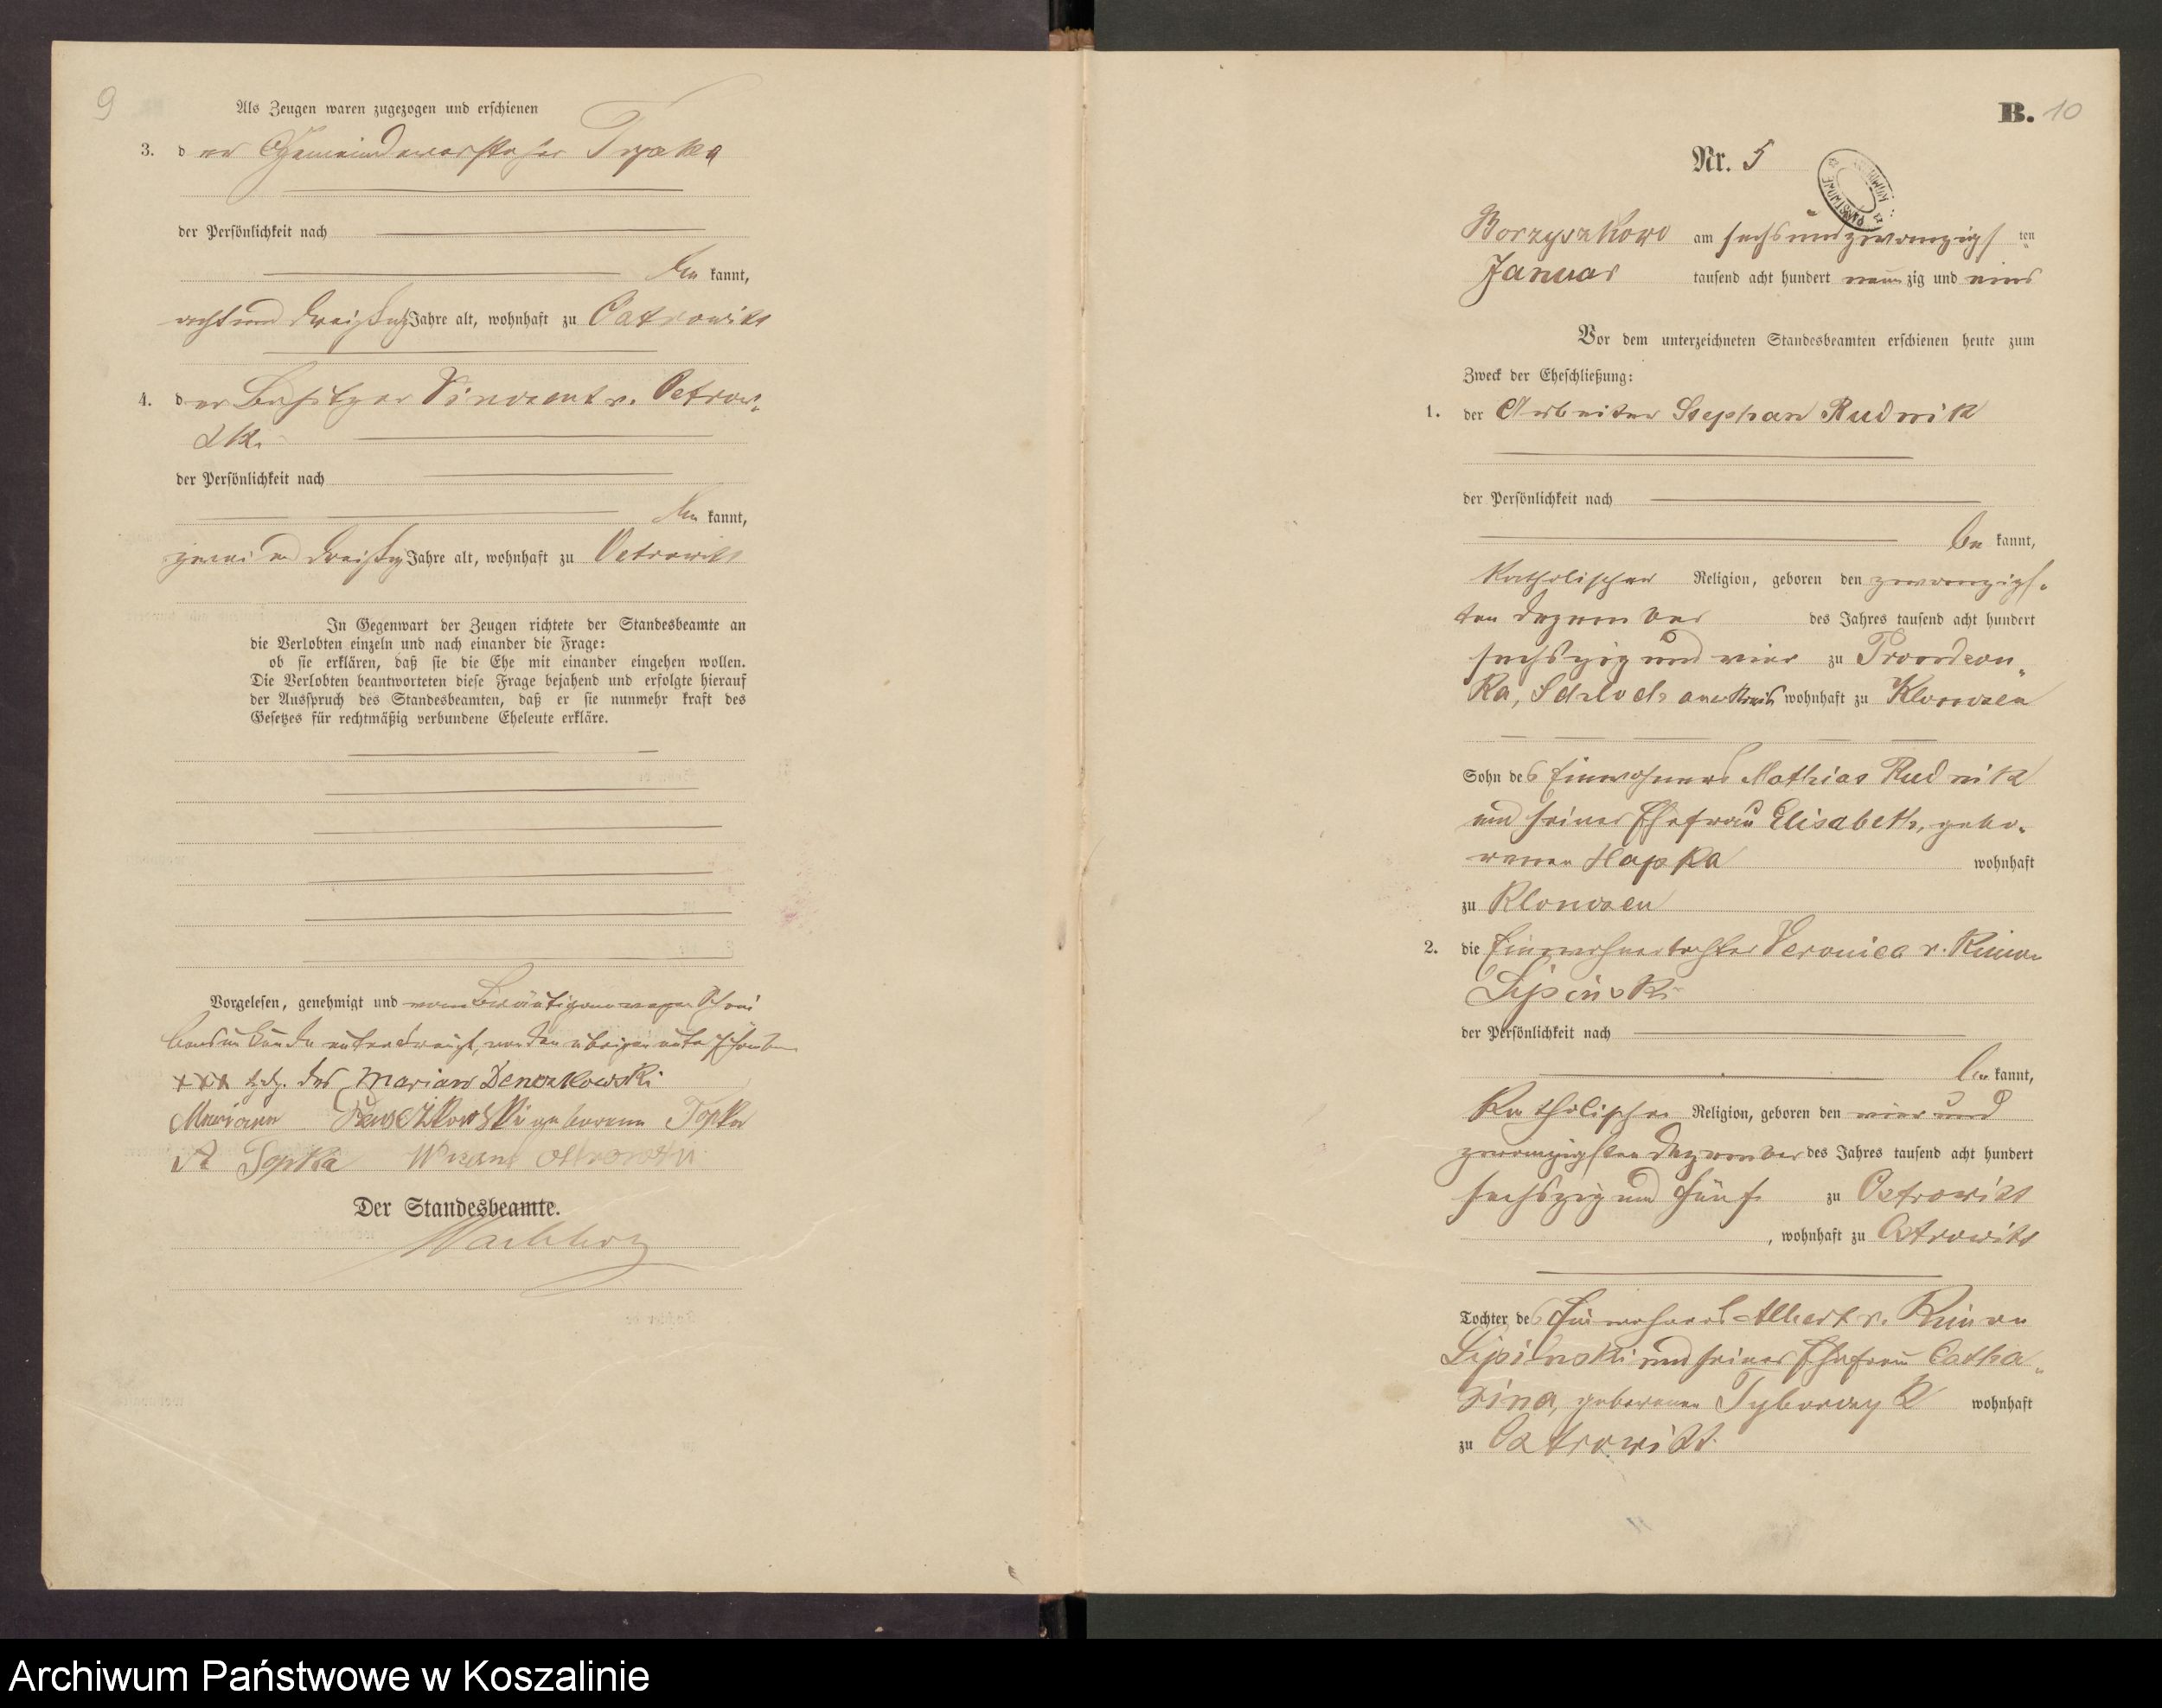 9
Als Zeugen waren zugezogen und erschienen
3. der Gemeindevorsteher
der Persönlichkeit nach
be kannt,
acht und dreißig Jahre alt, wohnhaft zu Ostrowitt
4. der Besitzer Vincent v. Ostrow-
ski
der Persönlichkeit nach
be kannt,
zwei und dreißig Jahre alt, wohnhaft zu Ostrowitt
In Gegenwart der Zeugen richtete der Standesbeamte an
die Verlobten einzeln und nach einander die Frage:
ob sie erklären, daß sie die Ehe mit einander eingehen wollen.
Die Verlobten beantworteten diese Frage bejahend und erfolgte hierauf
der Ausspruch des Standesbeamten, daß er sie nunmehr kraft des
Gesetzes für rechtmäßig verbundene Eheleute erkläre.
Vorgelesen, genehmigt und vom Bräutigam wegen Schrei
bensunkunde unterkreuzt, von den übrigen unterschrieben
+++ des Marian
Mariann geborene Topka
A Topka
Der Standesbeamte.
B. 10
Nr. 5
Borzyszkowo am sechsundzwanzigs ten
Januar tausend acht hundert neun zig und eins
Vor dem unterzeichneten Standesbeamten erschienen heute zum
Zweck der Eheschließung:
1. der Arbeiter Stephan Rudnik
der Persönlichkeit nach
be kannt,
katholischer Religion, geboren den zwanzigs-
ten Dezember des Jahres tausend acht hundert
sechszig und vier zu
ka, Schlochauer Kreis wohnhaft zu
Sohn des Einwohners Mathias Rudnik
und seiner Ehefrau Elisabeth, gebo-
renen Hapka wohnhaft
zu
2. die Einwohnertochter Veronica v.
Lipinski
der Persönlichkeit nach
be kannt,
Katholischer Religion, geboren den vier und
zwanzigsten Dezember des Jahres tausend acht hundert
sechszig und fünf zu Ostrowitt
, wohnhaft zu Ostrowitt
Tochter des Einwohners Albert v.
Lipinski und seiner Ehefrau Catha-
rina, geborenen wohnhaft
zu Ostrowitt.
Archiwum Państwowe w Koszalinie